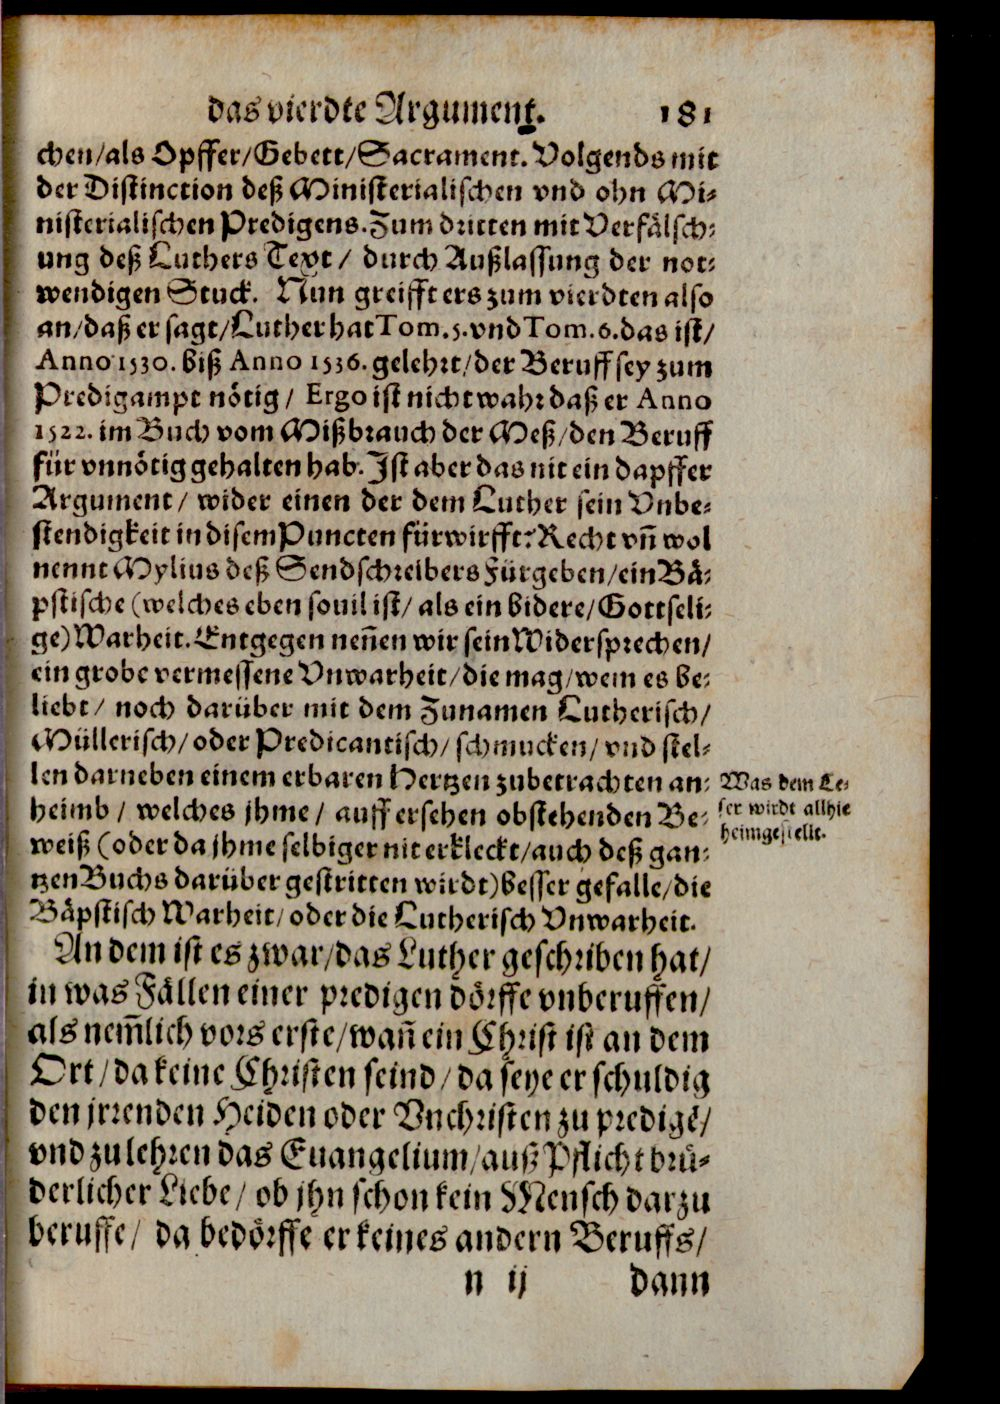 das vierdte Argument. 181
chen/als Opffer/Gebett/Sacrament. Volgends mit
der Distinction deß Ministerialischen vnd ohn Mi-
nisterialischen Predigens. Zum dritten mit Verfälsch-
ung deß Luthers Text/ durch Außlassung der not-
wendigen Stuck. Nun greifft ers zum vierdten also
an/daß er sagt/Luther hat Tom.5.vnd Tom.6.das ist/
Anno 1530. biß Anno 1536. gelehrt/der Beruff sey zum
Predigampt nötig/ Ergo ist nicht wahr daß er Anno
1522. im Buch vom Mißbrauch der Meß/den Beruff
für vnnötig gehalten hab. Ist aber das nit ein dapffer
Argument/ wider einen der dem Luther sein Vnbe-
stendigkeit in disem Puncten fürwirfft? Recht vñ wol
nennt Mylius deß Sendschreibers Fürgeben/ein Bä-
pstische (welches eben souil ist/ als ein bidere/Gottseli-
ge) Warheit. Entgegen neñen wir sein Widersprechen/
ein grobe vermessene Vnwarheit/die mag/wem es be-
liebt/ noch darüber mit dem Zunamen Lutherisch/
Müllerisch/oder Predicantisch/schmucken/vnd stel-
len darneben einem erbaren Hertzen zubetrachten an-
heimb/ welches jhme/ auff ersehen obstehenden Be-
weiß (oder da jhme selbiger nit erkleckt/auch deß gan-
tzen Buchs darüber gestritten wirdt) besser gefalle/die
Bäpstisch Warheit/oder die Lutherisch Vnwarheit.
Was dem Le-
ser wirdt allhie
heimgestellt.
An dem ist es zwar/das Luther geschriben hat/
in was Fällen einer predigen dörffe vnberuffen/
als nem̃lich vors erste/wañ ein Christ ist an dem
Ort/da keine Christen seind/da seye er schuldig
den jrrenden Heiden oder Vnchristen zu predigẽ/
vnd zu lehren das Euangelium/auß Pflicht brü-
derlicher Liebe/ ob jhn schon kein Mensch darzu
beruffe/ da bedörffe er keines andern Beruffs/
n ij dann